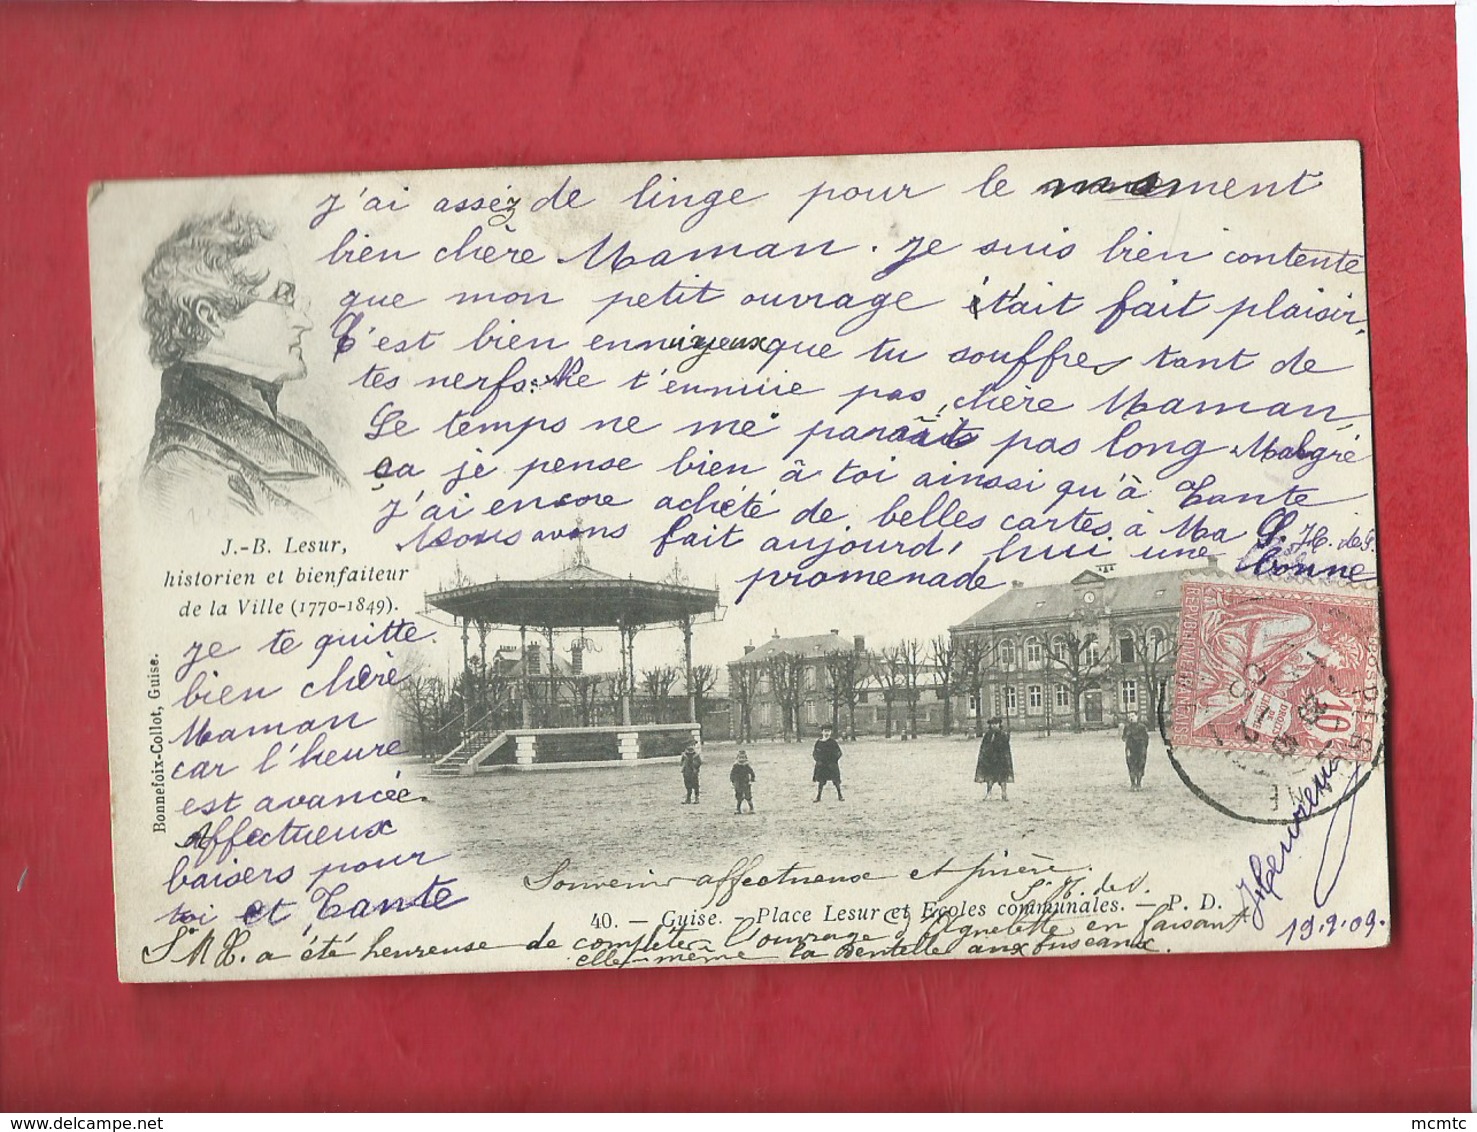 J'ai assez de linge pour le moment
bien chère Maman. Je suis bien contente
que mon petit ouvrage était fait plaisir,
C'est bien ennuyeux que tu souffres tant de
tes nerfs. Ne t'ennuie pas chère Maman,
Le temps ne me paraît pas long Malgré
ça je pense bien à toi ainsi qu'à Tante
J'ai encore acheté de belles cartes à Ma S. H. de S.
Nous avons fait aujourd'hui une bonne
promenade
J.-B. Lesur,
historien et bienfaiteur
de la Ville (1770-1849).
Je te quitte.
bien chère
Maman
car l'heure
est avancée.
Affectueux
baisers pour
toi et Tante
Bonnefoix-Collot, Guise.
REPUBLIQUE FRANÇAISE
POSTES
DROITS DE L'HOMME
10
19.9.09.
Souvenir affectueux et prière.
S. M. de V.
40. — Guise. — Place Lesur et Ecoles communales. — P. D.
S. M. H. a été heureuse de compléter l'ouvrage d' en faisant
elle-même la dentelle aux fuseaux.
mcmtc